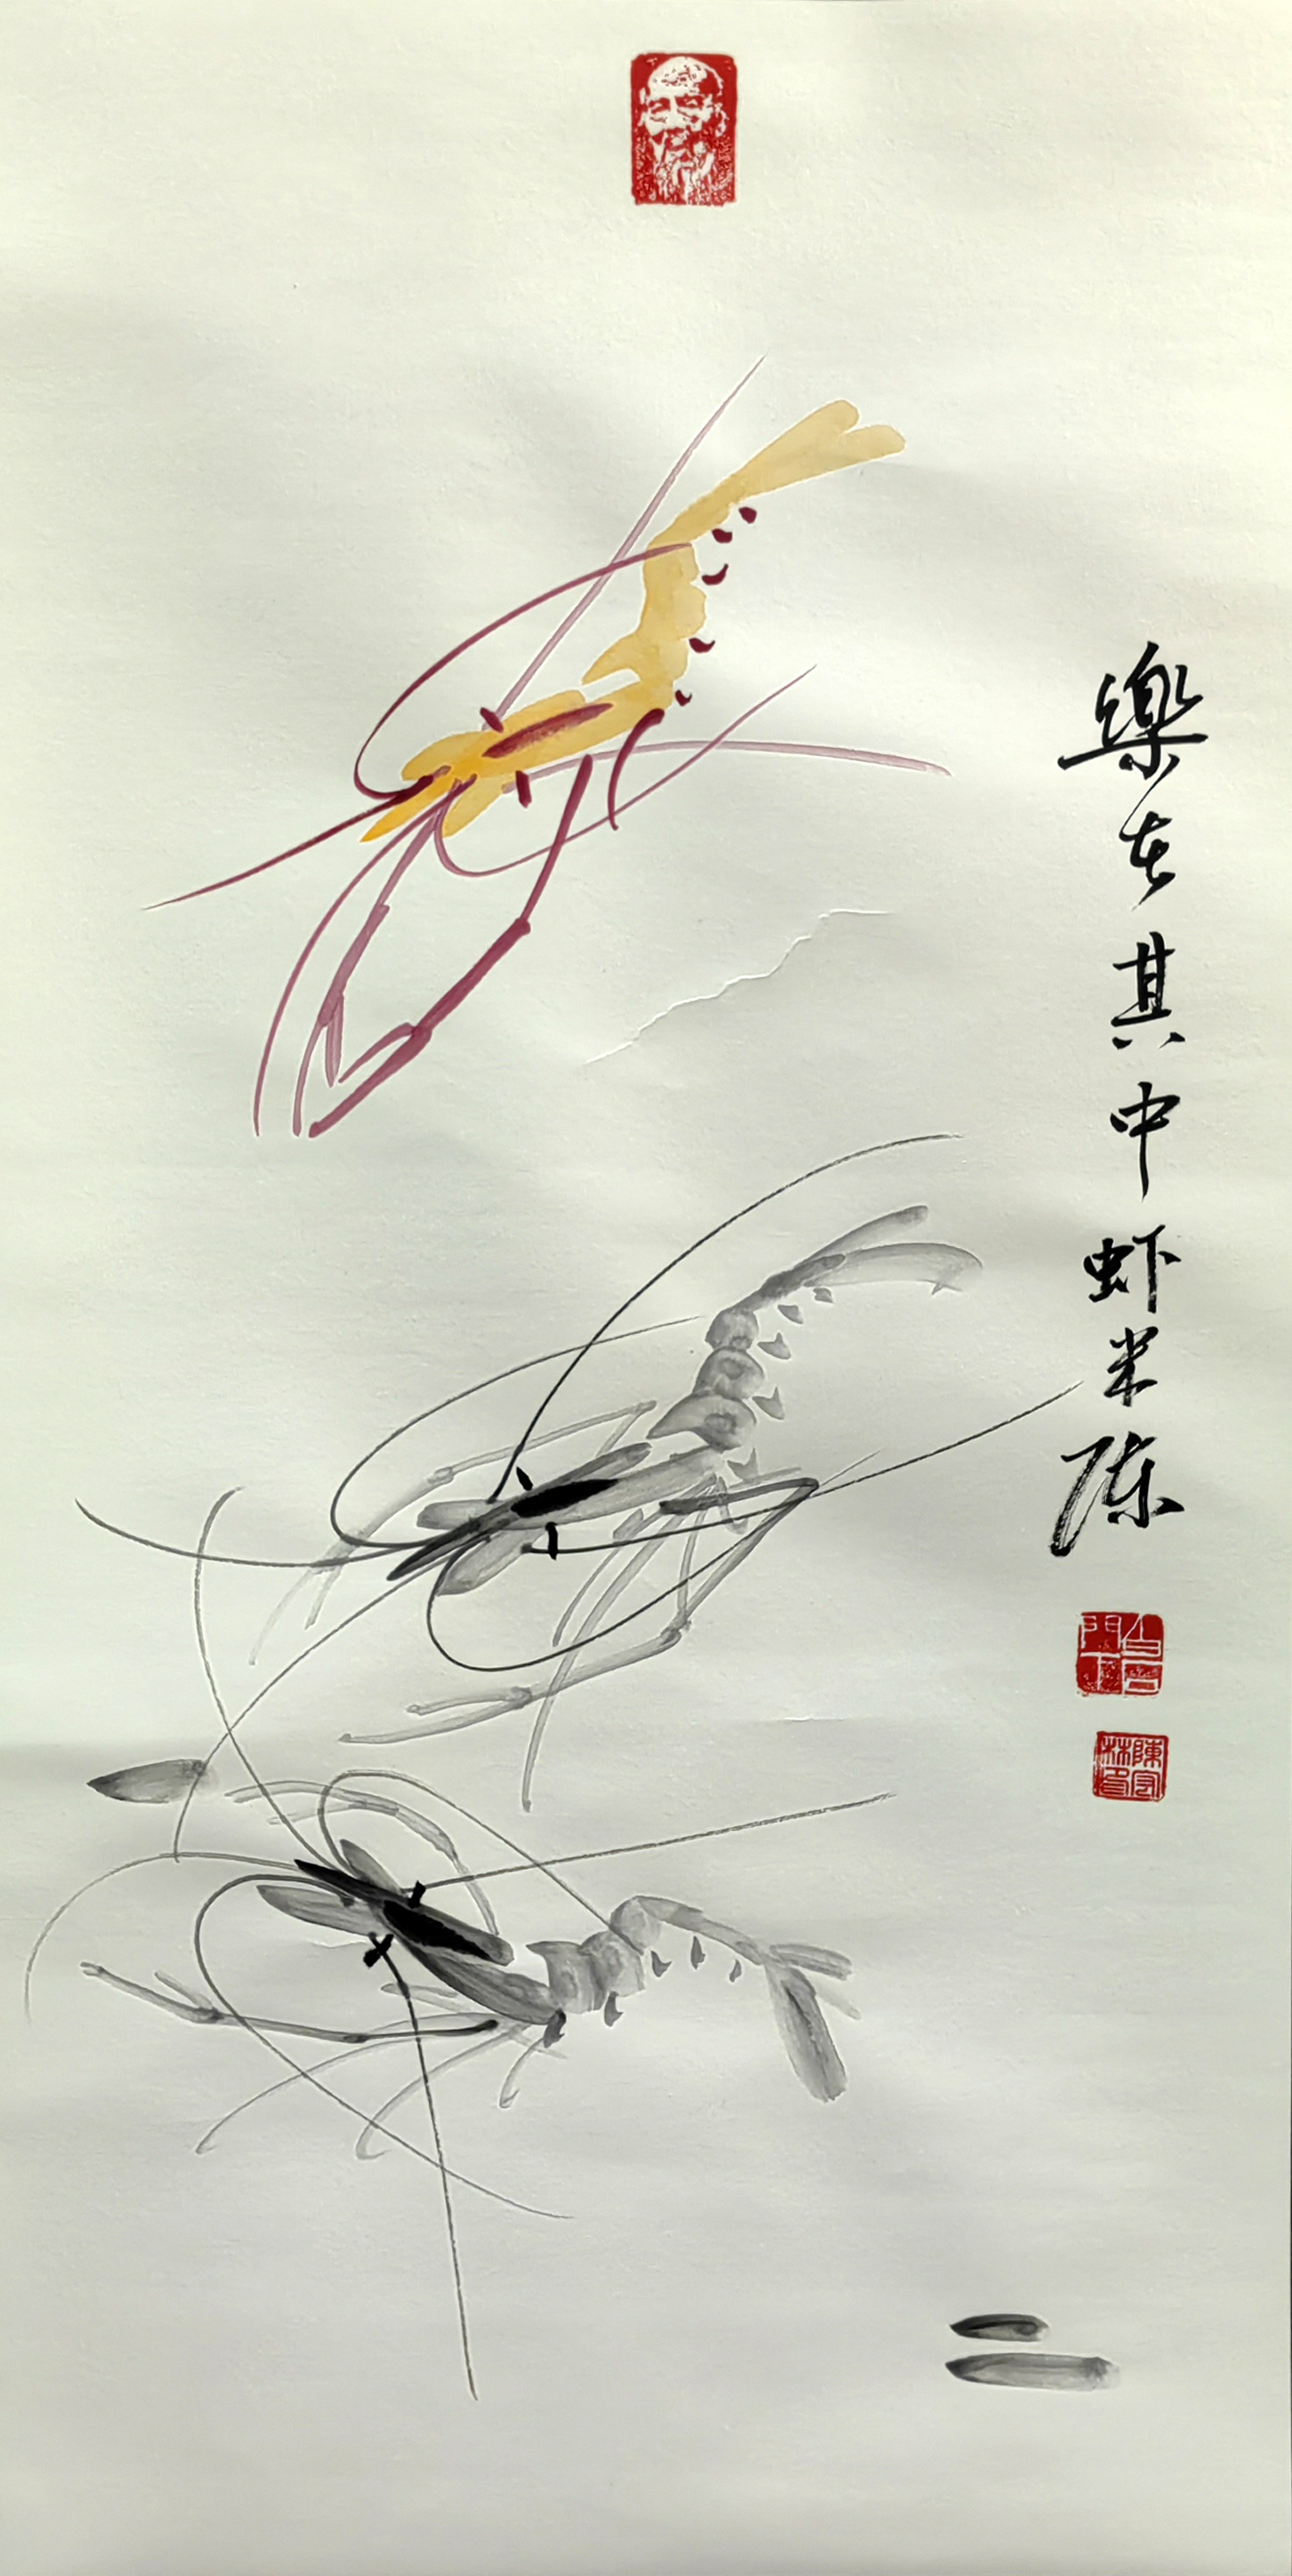 樂在其中虾米陈